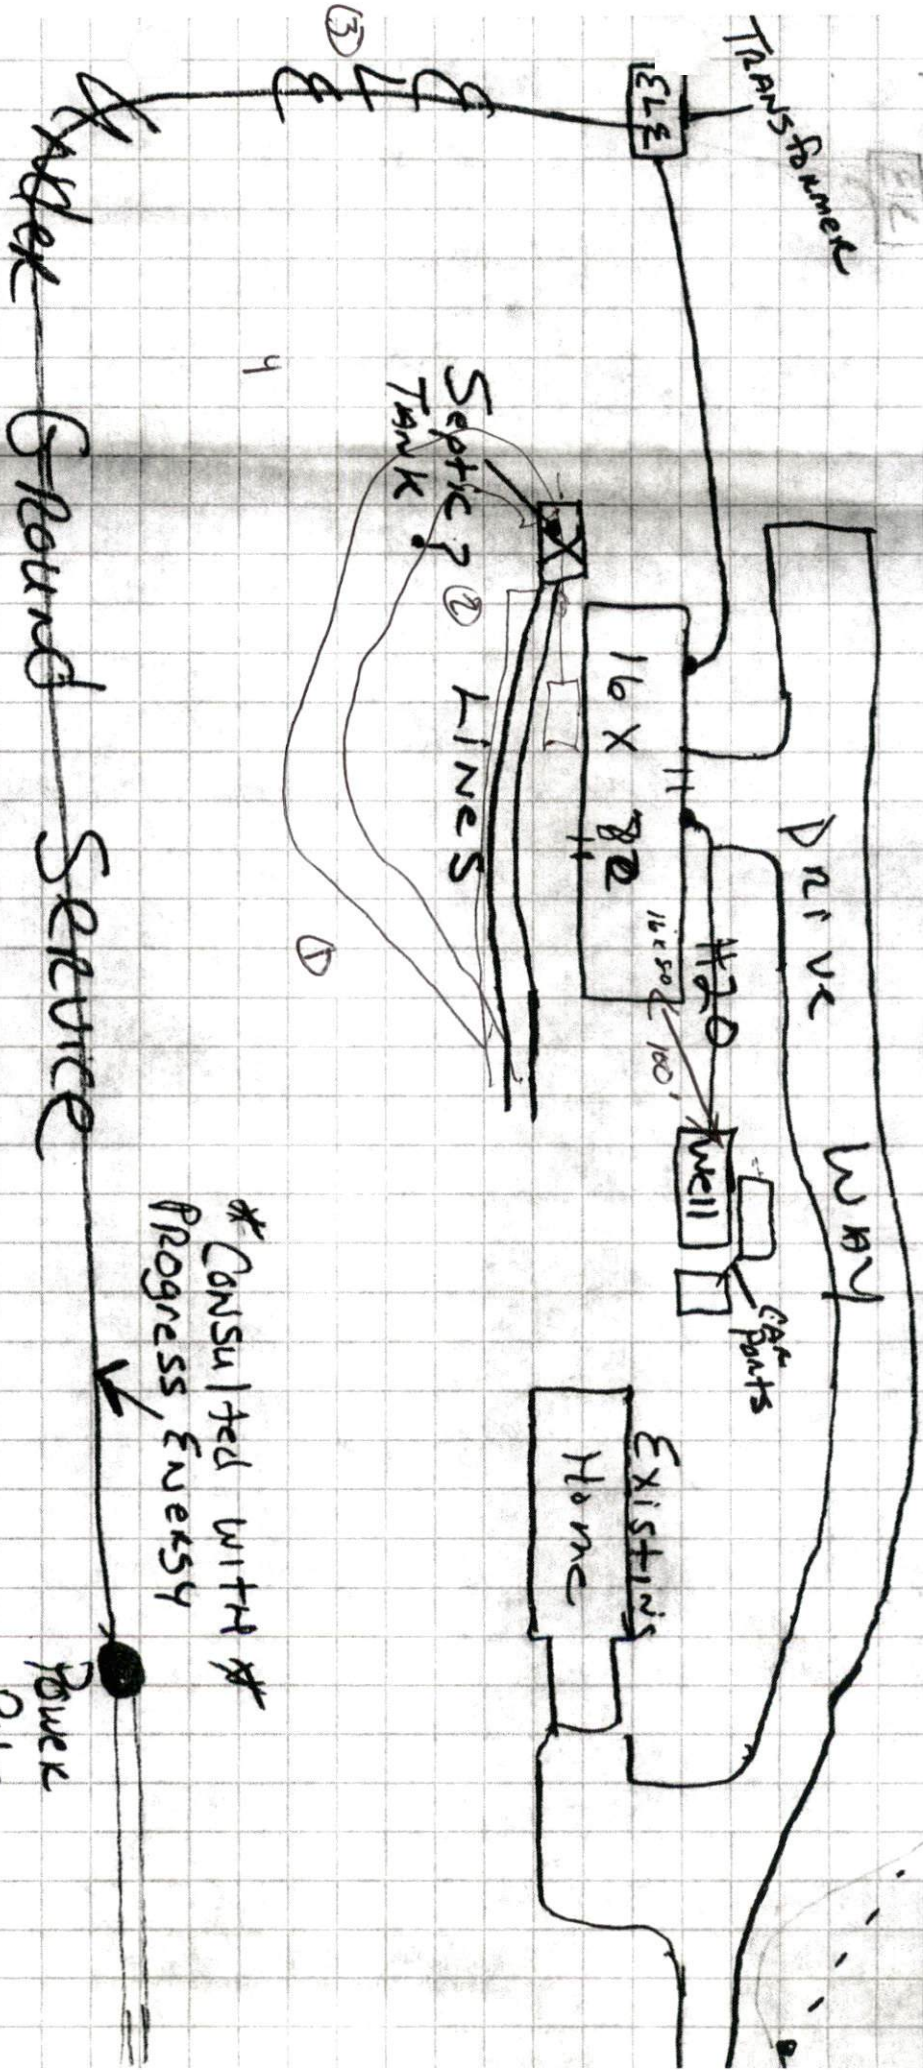 TRANSformer
ELE
ELE
③
ELEC
Under Ground Service
4
Septic ?
TANK
②
LiNeS
①
16 X 82
16 x 80
100'
H20
Well
CAR
Ports
Drive Way
Existing
Home
* Consulted WITH *
PROgress Energy
Power